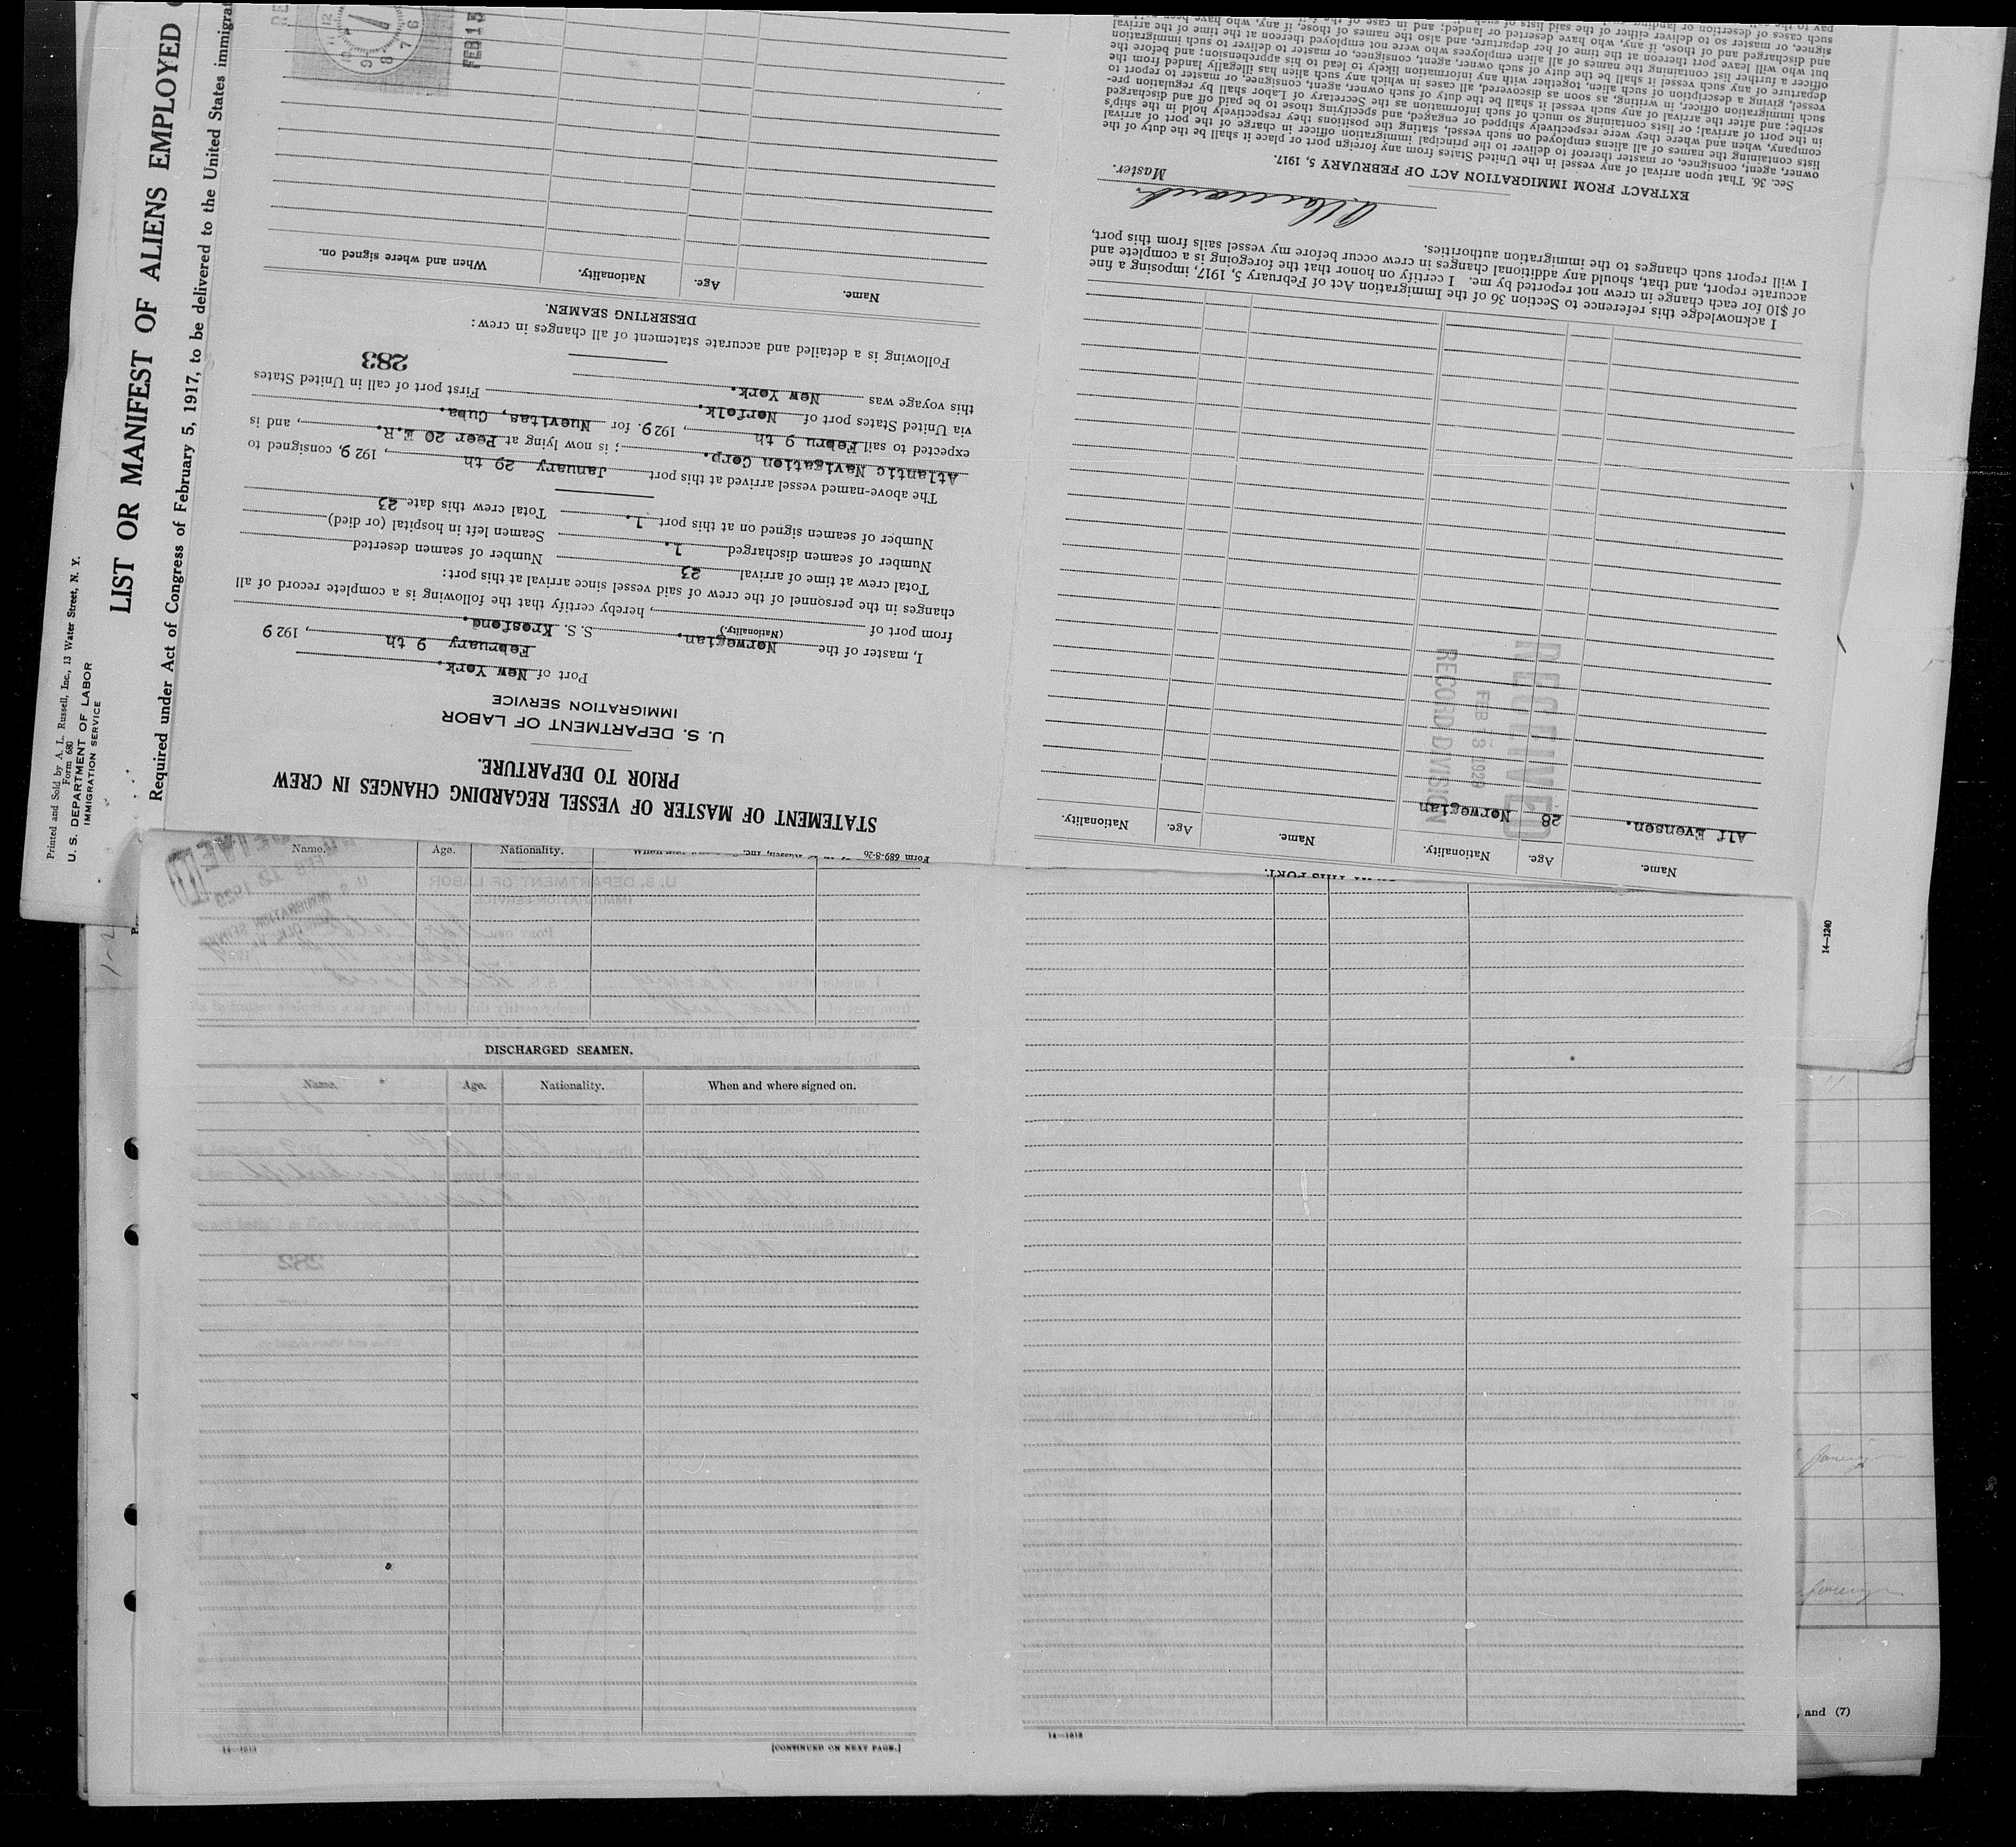 Printed and Sold by A. L. Russell, Inc., 13 Water Street, N. Y.
Form 680
U. S. DEPARTMENT OF LABOR
IMMIGRATION SERVICE
LIST OR MANIFEST OF ALIENS EMPLOYED
Required under Act of Congress of February 5, 1917, to be delivered to the United States immigra
STATEMENT OF MASTER OF VESSEL REGARDING CHANGES IN CREW
PRIOR TO DEPARTURE.
U. S. DEPARTMENT OF LABOR
IMMIGRATION SERVICE
Port of New York.
February 9 th, 1929
I, master of the Norwegian. S. S. Krosfond.
(Nationality.)
from port of , hereby certify that the following is a complete record of all
changes in the personnel of the crew of said vessel since arrival at this port:
Total crew at time of arrival 23 Number of seamen deserted
Number of seamen discharged 1. Seamen left in hospital (or died)
Number of seamen signed on at this port 1. Total crew this date 23
The above-named vessel arrived at this port January 29 th, 1929, consigned to
Atlantic Navigation Corp. ; is now lying at Peer 20 E.R. , and is
expected to sail Febru 9 th , 1929. for Nuevitas, Cuba.
via United States port of Norfolk. First port of call in United States
this voyage was New York.
283
Following is a detailed and accurate statement of all changes in crew:
DESERTING SEAMEN.
Name. Age. Nationality. When and where signed on.
FEB 13
Name. Age. Nationality. Name. Age. Nationality.
Alf Evensen. 28 Norwegian
RECEIVED
FEB 18 1929
RECORD DIVISION
I acknowledge this reference to Section 36 of the Immigration Act of February 5, 1917, imposing a fine
of $10 for each change in crew not reported by me. I certify on honor that the foregoing is a complete and
accurate report, and that, should any additional changes in crew occur before my vessel sails from this port,
I will report such changes to the immigration authorities.
Master.
EXTRACT FROM IMMIGRATION ACT OF FEBRUARY 5, 1917.
Sec. 36. That upon arrival of any vessel in the United States from any foreign port or place it shall be the duty of the
owner, agent, consignee, or master thereof to deliver to the principal immigration officer in charge of the port of arrival
lists containing the names of all aliens employed on such vessel, stating the positions they respectively hold in the ship's
company, when and where they were respectively shipped or engaged, and specifying those to be paid off and discharged
in the port of arrival; or lists containing so much of such information as the Secretary of Labor shall by regulation pre-
scribe; and after the arrival of any such vessel it shall be the duty of such owner, agent, consignee, or master to report to
such immigration officer, in writing, as soon as discovered, all cases in which any such alien has illegally landed from the
vessel, giving a description of such alien, together with any information likely to lead to his apprehension; and before the
departure of any such vessel it shall be the duty of such owner, agent, consignee, or master to deliver to such immigration
officer a further list containing the names of all alien employees who were not employed thereon at the time of the arrival
but who will leave port thereon at the time of her departure, and also the names of those, if any, who have been paid off
and discharged and of those, if any, who have deserted or landed; and in case of the
signee, or master so to deliver either of the said lists of such
such cases of desertion or landing,
14—1240
Name. Age. Nationality.
Form 689-8-26
DISCHARGED SEAMEN.
Name. Age. Nationality. When and where signed on.
14—1213
[CONTINUED ON NEXT PAGE.]
14—1213
, and (7)